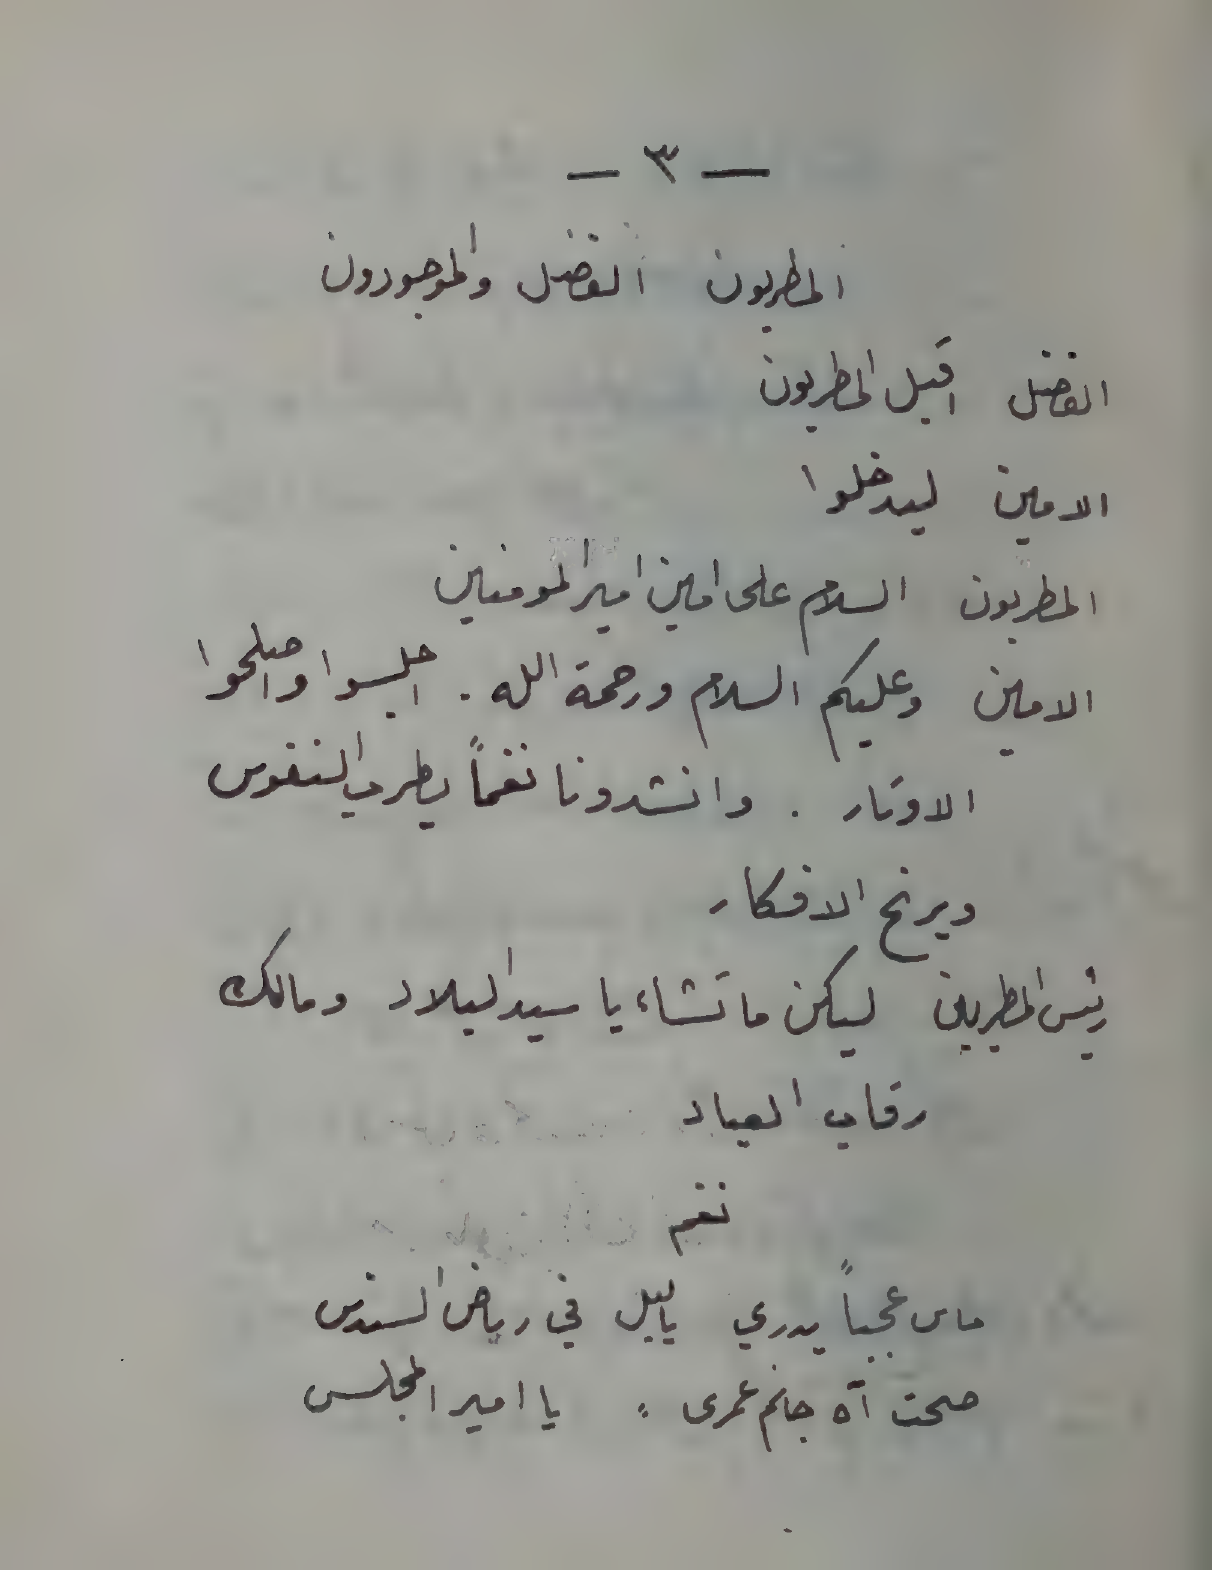 — ٣ —
المطربون الفضل والموجودون
الفضل اقبل المطربون
الامين ليدخلوا
المطربون السلام على امين امير المومنين
الامين وعليكم السلام ورحمة الله . اجلسوا واصلحوا
الاوتار . وانشدونا نغماً يطرب النفوس
ويرنح الافكار
رئيس المطربين ليكن ما تشاء يا سيد البلاد ومالك
رقاب العباد
نغم
ماس عجباً بدري ياليل في رياض السندس
صحت آه جانم عمرى . يا امير المجلس